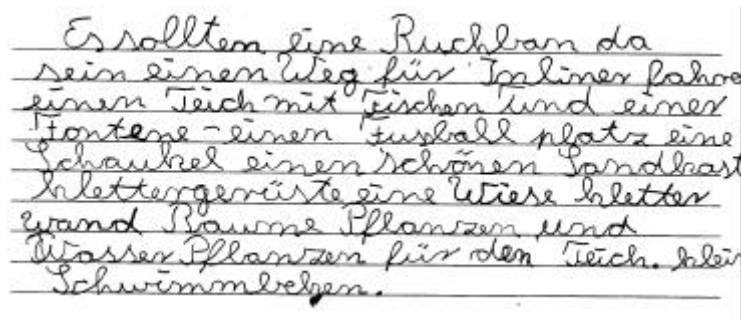 Es sollten eine Ruchban da
sein einen Weg für Inliner fahre
einen Teich mit Fischen und einer
Fontene - einen Fussball platz eine
Schaukel einen schönen Sandkast
klettergerüste eine Wiese kletter
wand Bäume Pflanzen und
Wasser Pflanzen für den Teich. klei
Schwimmbeken.